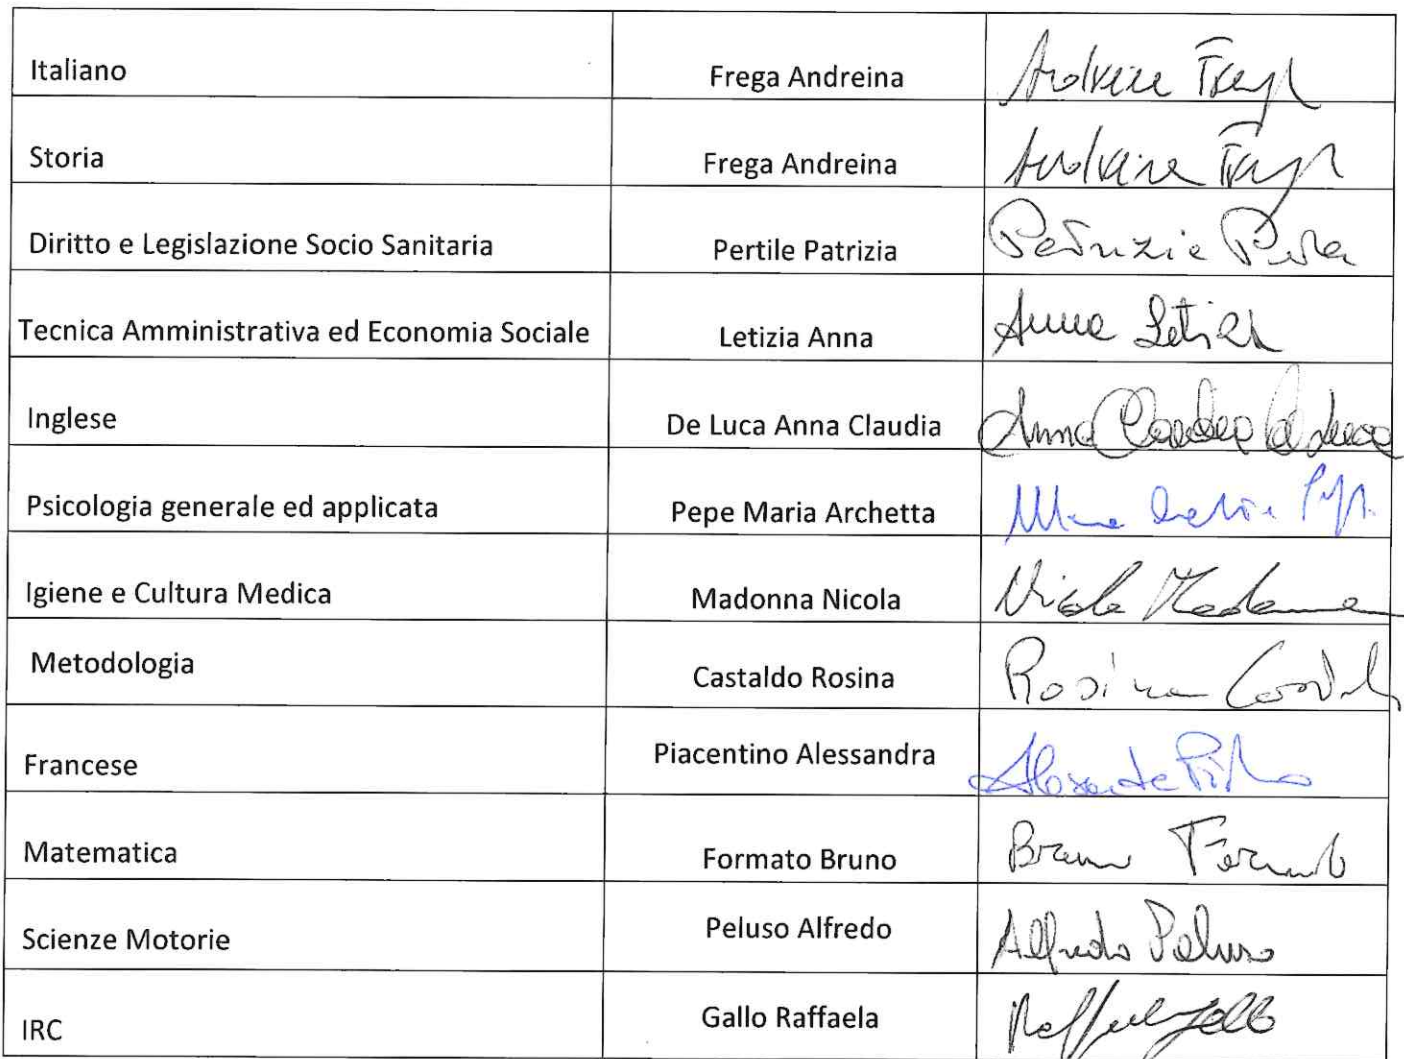 Italiano Frega Andreina
Storia Frega Andreina
Diritto e Legislazione Socio Sanitaria Pertile Patrizia
Tecnica Amministrativa ed Economia Sociale Letizia Anna Anna Letizia
Inglese De Luca Anna Claudia Anna Claudia De Luca
Psicologia generale ed applicata Pepe Maria Archetta
Igiene e Cultura Medica Madonna Nicola Nicola Madonna
Metodologia Castaldo Rosina Rosina
Francese Piacentino Alessandra
Matematica Formato Bruno Bruno Formato
Scienze Motorie Peluso Alfredo Alfredo Peluso
IRC Gallo Raffaela